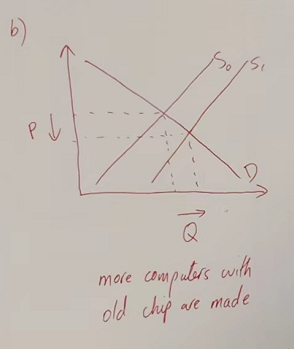 b)
S₀ S₁
P ↓
D
Q →
more computers with
old chip are made